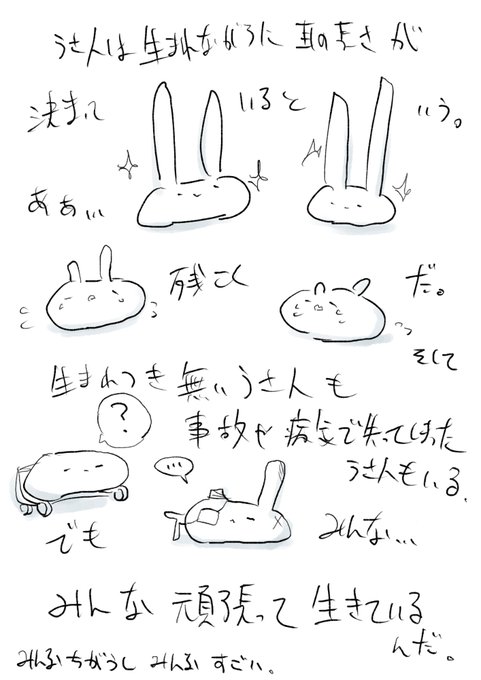 うさ人は生まれながらに耳の長さが
決まって いると いう。
ああ…
残こく だ。
そして
生まれつき無いうさ人も
事故や病気で失ってしまった
うさ人もいる、
?
…
でも みんな…
みんな 頑張って 生きている
んだ。
みんなちがうし みんな すごい。